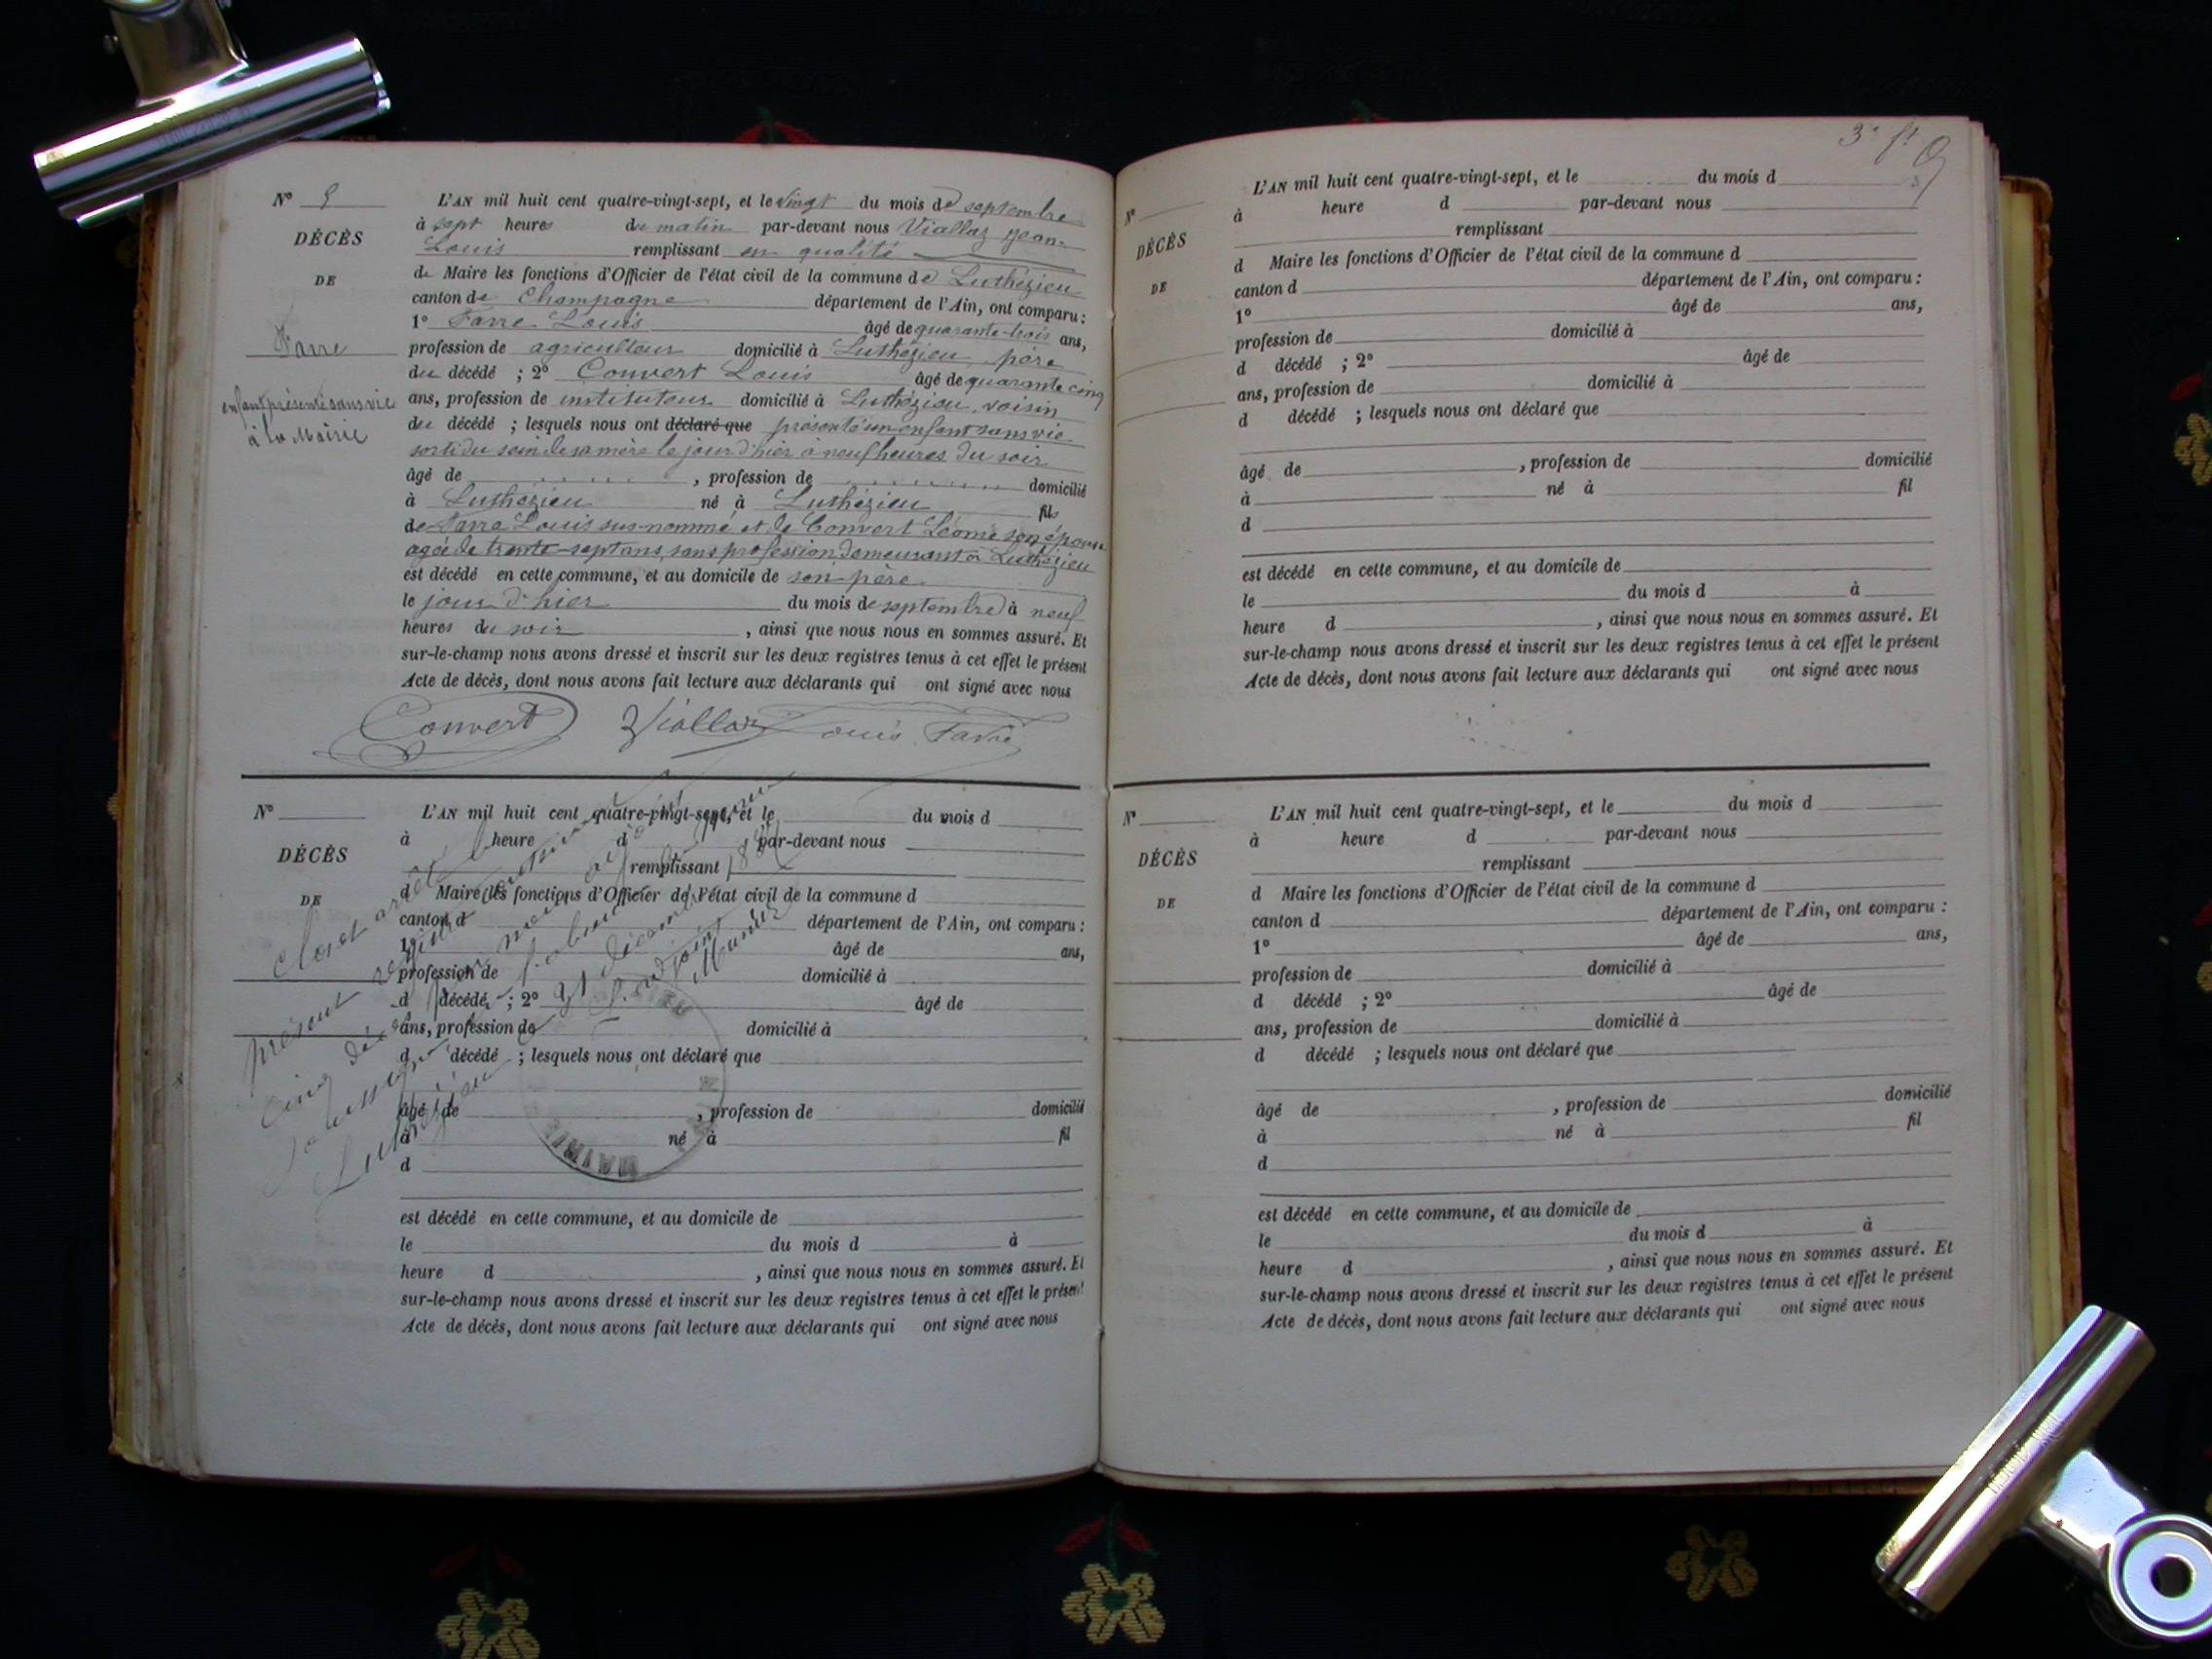 N° 5
DÉCÈS
DE
Favre
enfant présenté sans vie
à la Mairie
L'AN mil huit cent quatre-vingt-sept, et le vingt du mois de septembre
à sept heures du matin par-devant nous Viallaz Jean-
Louis remplissant en qualité
de Maire les fonctions d'Officier de l'état civil de la commune de Luthézieu
canton de Champagne département de l'Ain, ont comparu :
1° Favre Louis âgé de quarante-trois ans,
profession de agriculteur domicilié à Luthézieu, père
du décédé ; 2° Convert Louis âgé de quarante cinq
ans, profession de instituteur domicilié à Luthézieu, voisin
du décédé ; lesquels nous ont déclaré que présenté un enfant sans vie
sorti du sein de sa mère le jour d'hier à neuf heures du soir
âgé de , profession de domicilié
à Luthézieu né à Luthézieu fils
de Favre Louis sus-nommé et de Convert Léonie son épouse
agée de trente-sept ans, sans profession demeurant à Luthézieu
est décédé en cette commune, et au domicile de son père
le jour d'hier du mois de septembre à neuf
heures du soir , ainsi que nous nous en sommes assuré. Et
sur-le-champ nous avons dressé et inscrit sur les deux registres tenus à cet effet le présent
Acte de décès, dont nous avons fait lecture aux déclarants qui ont signé avec nous
Convert Viallaz Louis Favre
N°
DÉCÈS
DE
L'AN mil huit cent quatre-vingt-sept, et le du mois d
à heure d par-devant nous
remplissant
d Maire les fonctions d'Officier de l'état civil de la commune d
canton d département de l'Ain, ont comparu :
1° âgé de ans,
profession de domicilié à
d décédé ; 2° âgé de
ans, profession de domicilié à
d décédé ; lesquels nous ont déclaré que
âgé de , profession de domicilié
à né à fil
d
est décédé en cette commune, et au domicile de
le du mois d à
heure d , ainsi que nous nous en sommes assuré. Et
sur-le-champ nous avons dressé et inscrit sur les deux registres tenus à cet effet le présent
Acte de décès, dont nous avons fait lecture aux déclarants qui ont signé avec nous
Clos et arrêté le
présent registre
cinq décès
Luthézieu 31 décembre 1887
L'adjoint
MAIRIE
3e ft
N°
DÉCÈS
DE
L'AN mil huit cent quatre-vingt-sept, et le du mois d
à heure d par-devant nous
remplissant
d Maire les fonctions d'Officier de l'état civil de la commune d
canton d département de l'Ain, ont comparu :
1° âgé de ans,
profession de domicilié à
d décédé ; 2° âgé de
ans, profession de domicilié à
d décédé ; lesquels nous ont déclaré que
âgé de , profession de domicilié
à né à fil
d
est décédé en cette commune, et au domicile de
le du mois d à
heure d , ainsi que nous nous en sommes assuré. Et
sur-le-champ nous avons dressé et inscrit sur les deux registres tenus à cet effet le présent
Acte de décès, dont nous avons fait lecture aux déclarants qui ont signé avec nous
N°
DÉCÈS
DE
L'AN mil huit cent quatre-vingt-sept, et le du mois d
à heure d par-devant nous
remplissant
d Maire les fonctions d'Officier de l'état civil de la commune d
canton d département de l'Ain, ont comparu :
1° âgé de ans,
profession de domicilié à
d décédé ; 2° âgé de
ans, profession de domicilié à
d décédé ; lesquels nous ont déclaré que
âgé de , profession de domicilié
à né à fil
d
est décédé en cette commune, et au domicile de
le du mois d à
heure d , ainsi que nous nous en sommes assuré. Et
sur-le-champ nous avons dressé et inscrit sur les deux registres tenus à cet effet le présent
Acte de décès, dont nous avons fait lecture aux déclarants qui ont signé avec nous